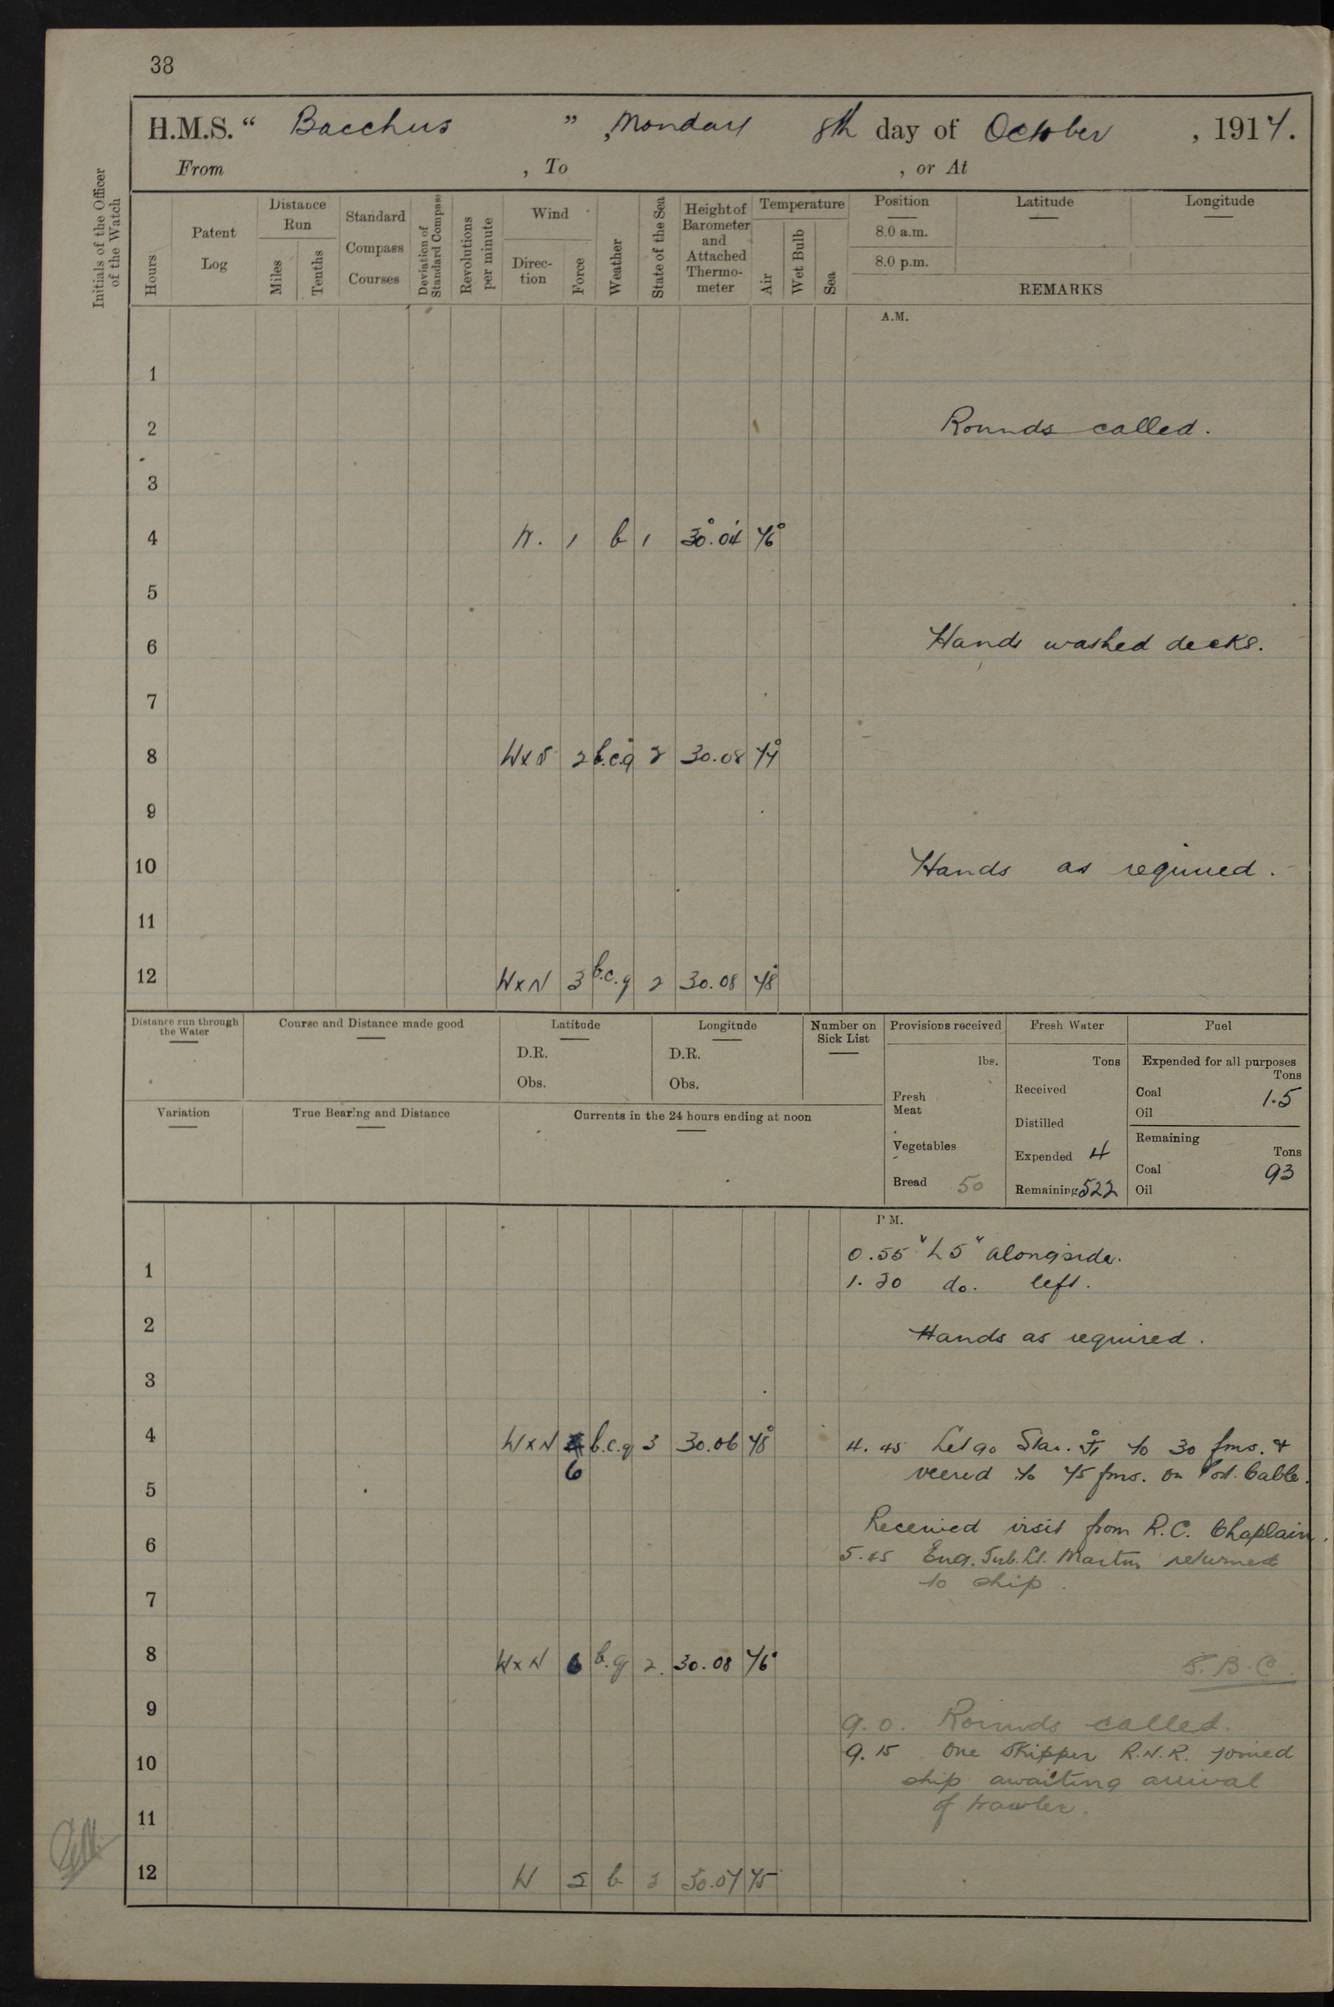 38
H.M.S. “ Bacchus ” , Monday 8th day of October , 1917.
From , To , or At
Initials of the Officer of the Watch
Hours
Patent Log
Distance Run
Miles
Tenths
Standard Compass Courses
Deviation of Standard Compass
Revolutions per minute
Wind
Direc- tion
Force
Weather
State of the Sea
Height of Barometer and Attached Thermo- meter
Temperature
Air
Wet Bulb
Sea
Position
8.0 a.m.
8.0 p.m.
Latitude
Longitude
REMARKS
A.M.
1
2 Rounds called.
3
4 W. 1 b 1 30.04 46°
5
6 Hands washed decks.
7
8 WxS 2 b.c.q 2 30.08 44°
9
10 Hands as required.
11
12 WxN 3 b.c.q 2 30.08 48°
Distance run through the Water
Course and Distance made good
Latitude
D.R.
Obs.
Longitude
D.R.
Obs.
Number on Sick List
Variation
True Bearing and Distance
Currents in the 24 hours ending at noon
Provisions received
lbs.
Fresh Meat
Vegetables
Bread 50
Fresh Water
Tons
Received
Distilled
Expended 4
Remaining 522
Fuel
Expended for all purposes
Tons
Coal 1.5
Oil
Remaining
Tons
Coal 93
Oil
P.M.
0.55 "L5" alongside.
1 1.20 do. left.
2 Hands as required.
3
4 WxN 6 b.c.q 3 30.06 48° 4.45 Let go Star. to 30 fms. &
veered to 45 fms. on Port. Cable.
5
Received visit from R.C. Chaplain.
6 5.45 Eng. Sub. Lt. Martin returned
to ship.
7
8 WxN 6 b.q 2. 30.08 46° S.B.C.
9 9.0. Rounds called.
10 9.15 One Skipper R.N.R. joined
ship awaiting arrival
11 of trawler.
12 W 5 b 3 30.07 45